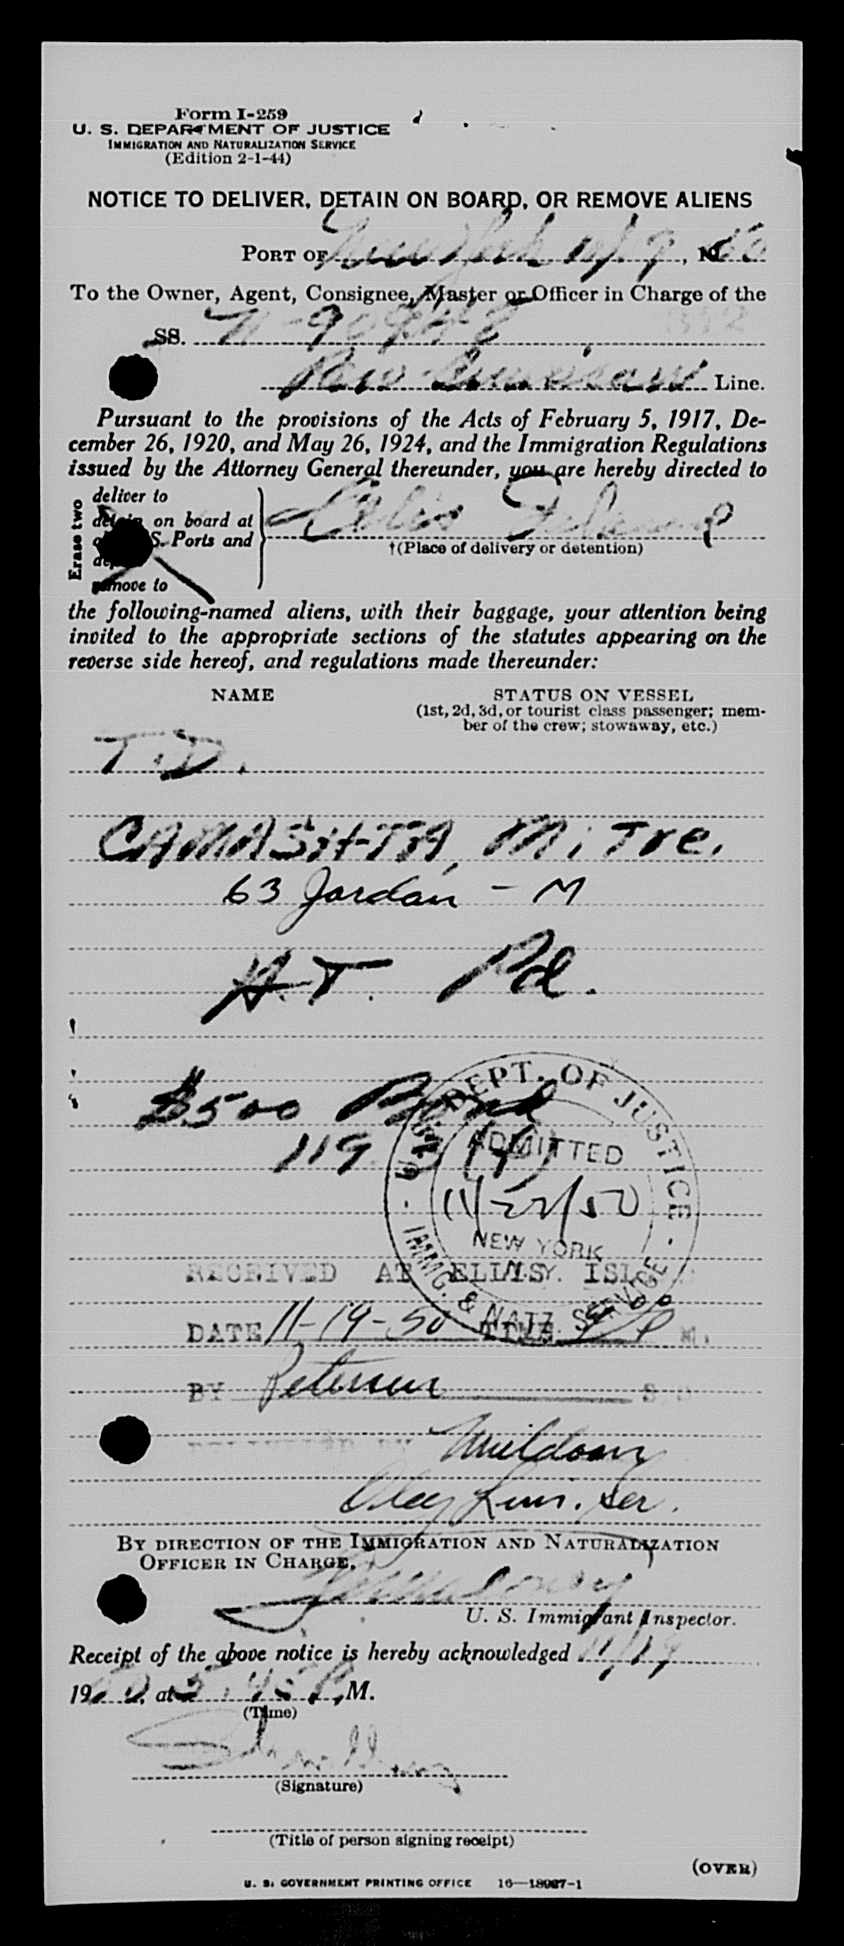 Form I-259
U. S. DEPARTMENT OF JUSTICE
IMMIGRATION AND NATURALIZATION SERVICE
(Edition 2-1-44)
NOTICE TO DELIVER, DETAIN ON BOARD, OR REMOVE ALIENS
PORT OF New York 11/19, 1950
To the Owner, Agent, Consignee, Master or Officer in Charge of the
SS. N-90948
Pan American Line.
Pursuant to the provisions of the Acts of February 5, 1917, De-
cember 26, 1920, and May 26, 1924, and the Immigration Regulations
issued by the Attorney General thereunder, you are hereby directed to
Erase two
deliver to
detain on board at
S. Ports and
remove to
Ellis Island
†(Place of delivery or detention)
the following-named aliens, with their baggage, your attention being
invited to the appropriate sections of the statutes appearing on the
reverse side hereof, and regulations made thereunder:
NAME STATUS ON VESSEL
(1st, 2d, 3d, or tourist class passenger; mem-
ber of the crew; stowaway, etc.)
T.D.
CAMASHTA, Mitre.
63 Jordan - M
H.T. Pd.
$500 Bond
119
U.S. DEPT. OF JUSTICE
ADMITTED
11/22/50
NEW YORK
N.Y.
IMMIG. & NATZ SERVICE
RECEIVED AT ELLIS ISL
DATE 11-19-50 TIME P M.
BY Petersen S.
DELIVERED BY Muldoon
BY DIRECTION OF THE IMMIGRATION AND NATURALIZATION
OFFICER IN CHARGE,
U. S. Immigrant Inspector.
Receipt of the above notice is hereby acknowledged 11/19
1950, at 5:45 P.M.
(Time)
(Signature)
(Title of person signing receipt)
(OVER)
U. S. GOVERNMENT PRINTING OFFICE 16—18087-1